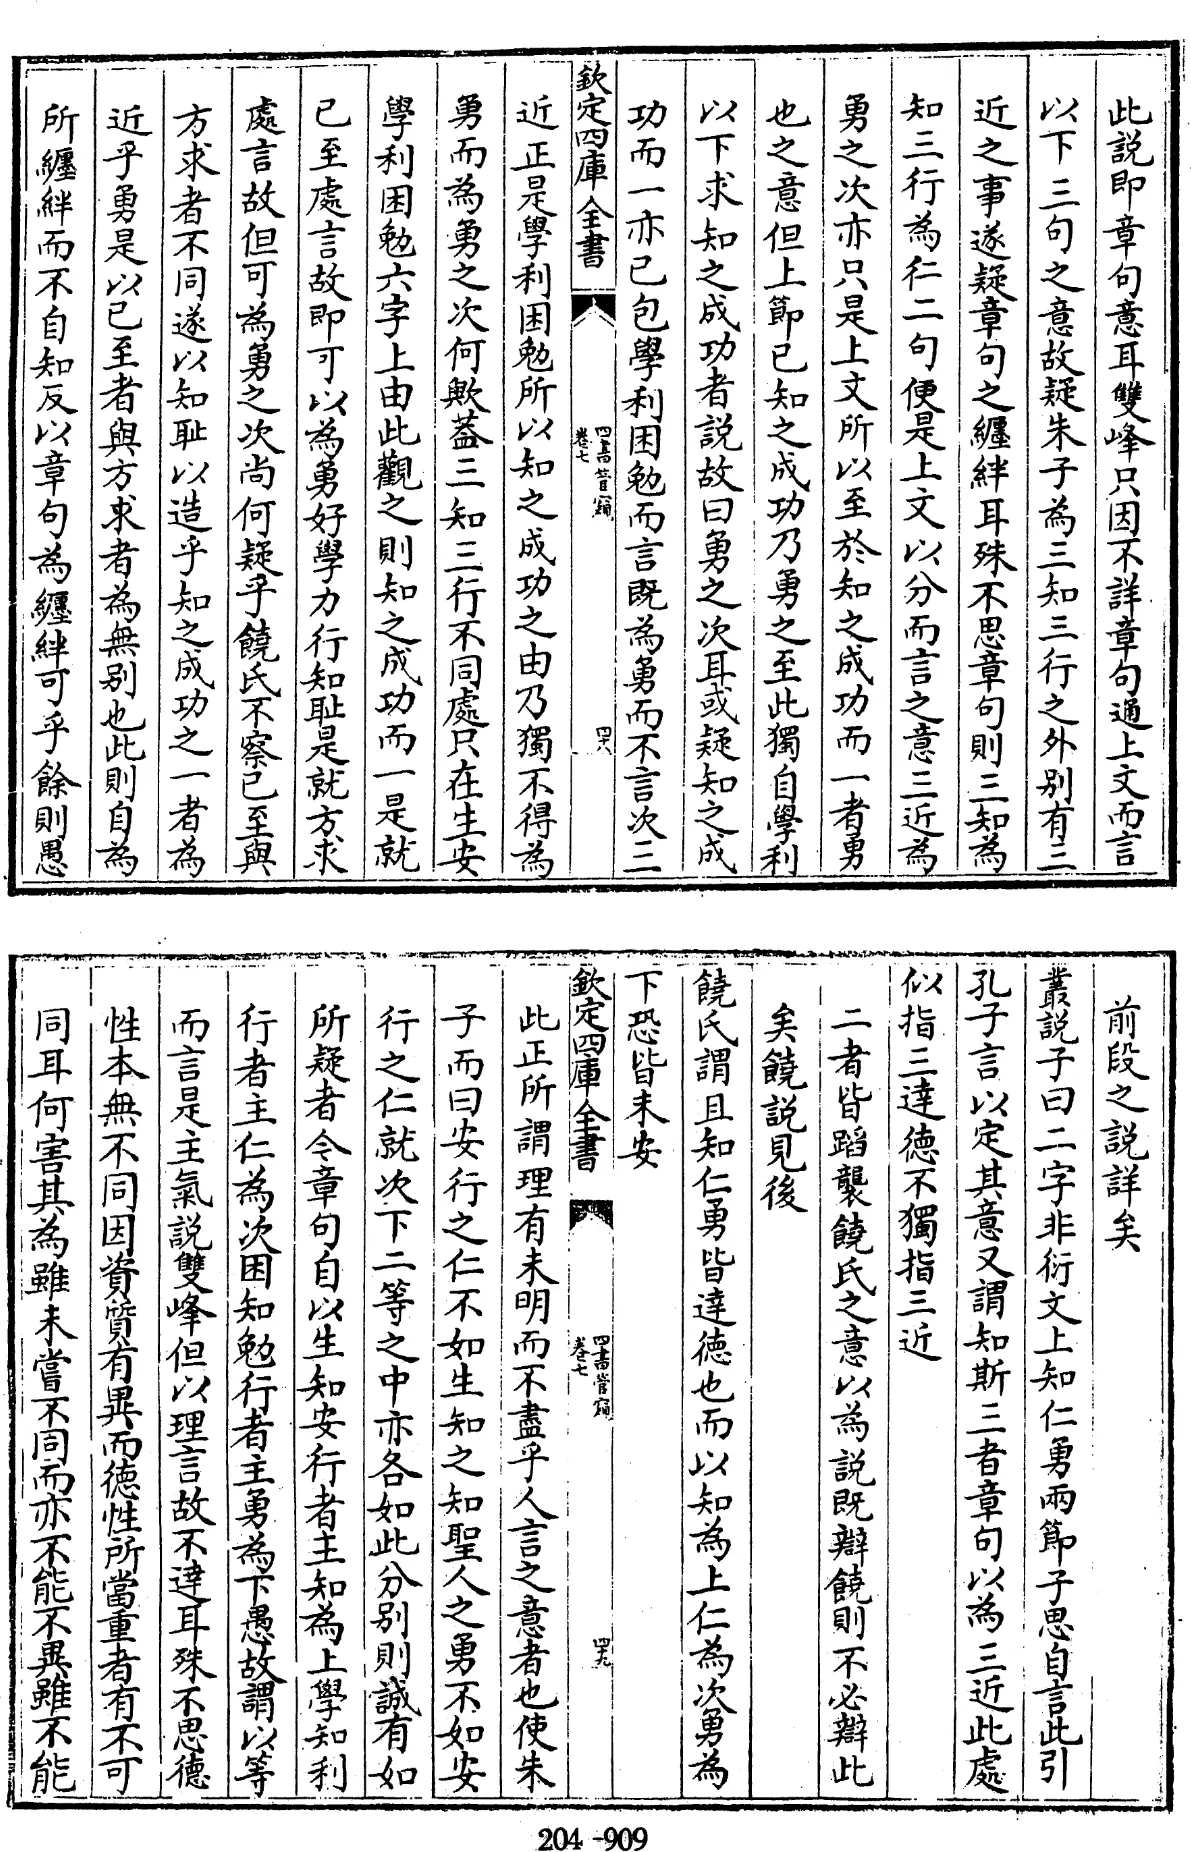 此説即章句意耳雙峰只因不詳章句通上文而言
以下三句之意故疑朱子為三知三行之外别有三
近之事遂疑章句之纒絆耳殊不思章句則三知為
知三行為仁二句便是上文以分而言之意三近為
勇之次亦只是上文所以至於知之成功而一者勇
也之意但上節已知之成功乃勇之至此獨自學利
以下求知之成功者説故曰勇之次耳或疑知之成
功而一亦已包學利困勉而言既為勇而不言次三
欽定四庫全書
四書管窺
卷七
四八
近正是學利困勉所以知之成功之由乃獨不得為
勇而為勇之次何歟葢三知三行不同處只在生安
學利困勉六字上由此觀之則知之成功而一是就
已至處言故即可以為勇好學力行知耻是就方求
處言故但可為勇之次尚何疑乎饒氏不察已至與
方求者不同遂以知耻以造乎知之成功之一者為
近乎勇是以已至者與方求者為無别也此則自為
所纒絆而不自知反以章句為纒絆可乎餘則愚
前段之説詳矣
叢説子曰二字非衍文上知仁勇兩節子思自言此引
孔子言以定其意又謂知斯三者章句以為三近此處
似指三達德不獨指三近
二者皆蹈襲饒氏之意以為説既辯饒則不必辯此
矣饒説見後
饒氏謂且知仁勇皆達德也而以知為上仁為次勇為
下恐皆未安
欽定四庫全書
四書管窺
卷七
四九
此正所謂理有未明而不盡乎人言之意者也使朱
子而曰安行之仁不如生知之知聖人之勇不如安
行之仁就次下二等之中亦各如此分别則誠有如
所疑者今章句自以生知安行者主知為上學知利
行者主仁為次困知勉行者主勇為下愚故謂以等
而言是主氣説雙峰但以理言故不達耳殊不思德
性本無不同因資質有異而德性所當重者有不可
同耳何害其為雖未嘗不同而亦不能不異雖不能
204-909